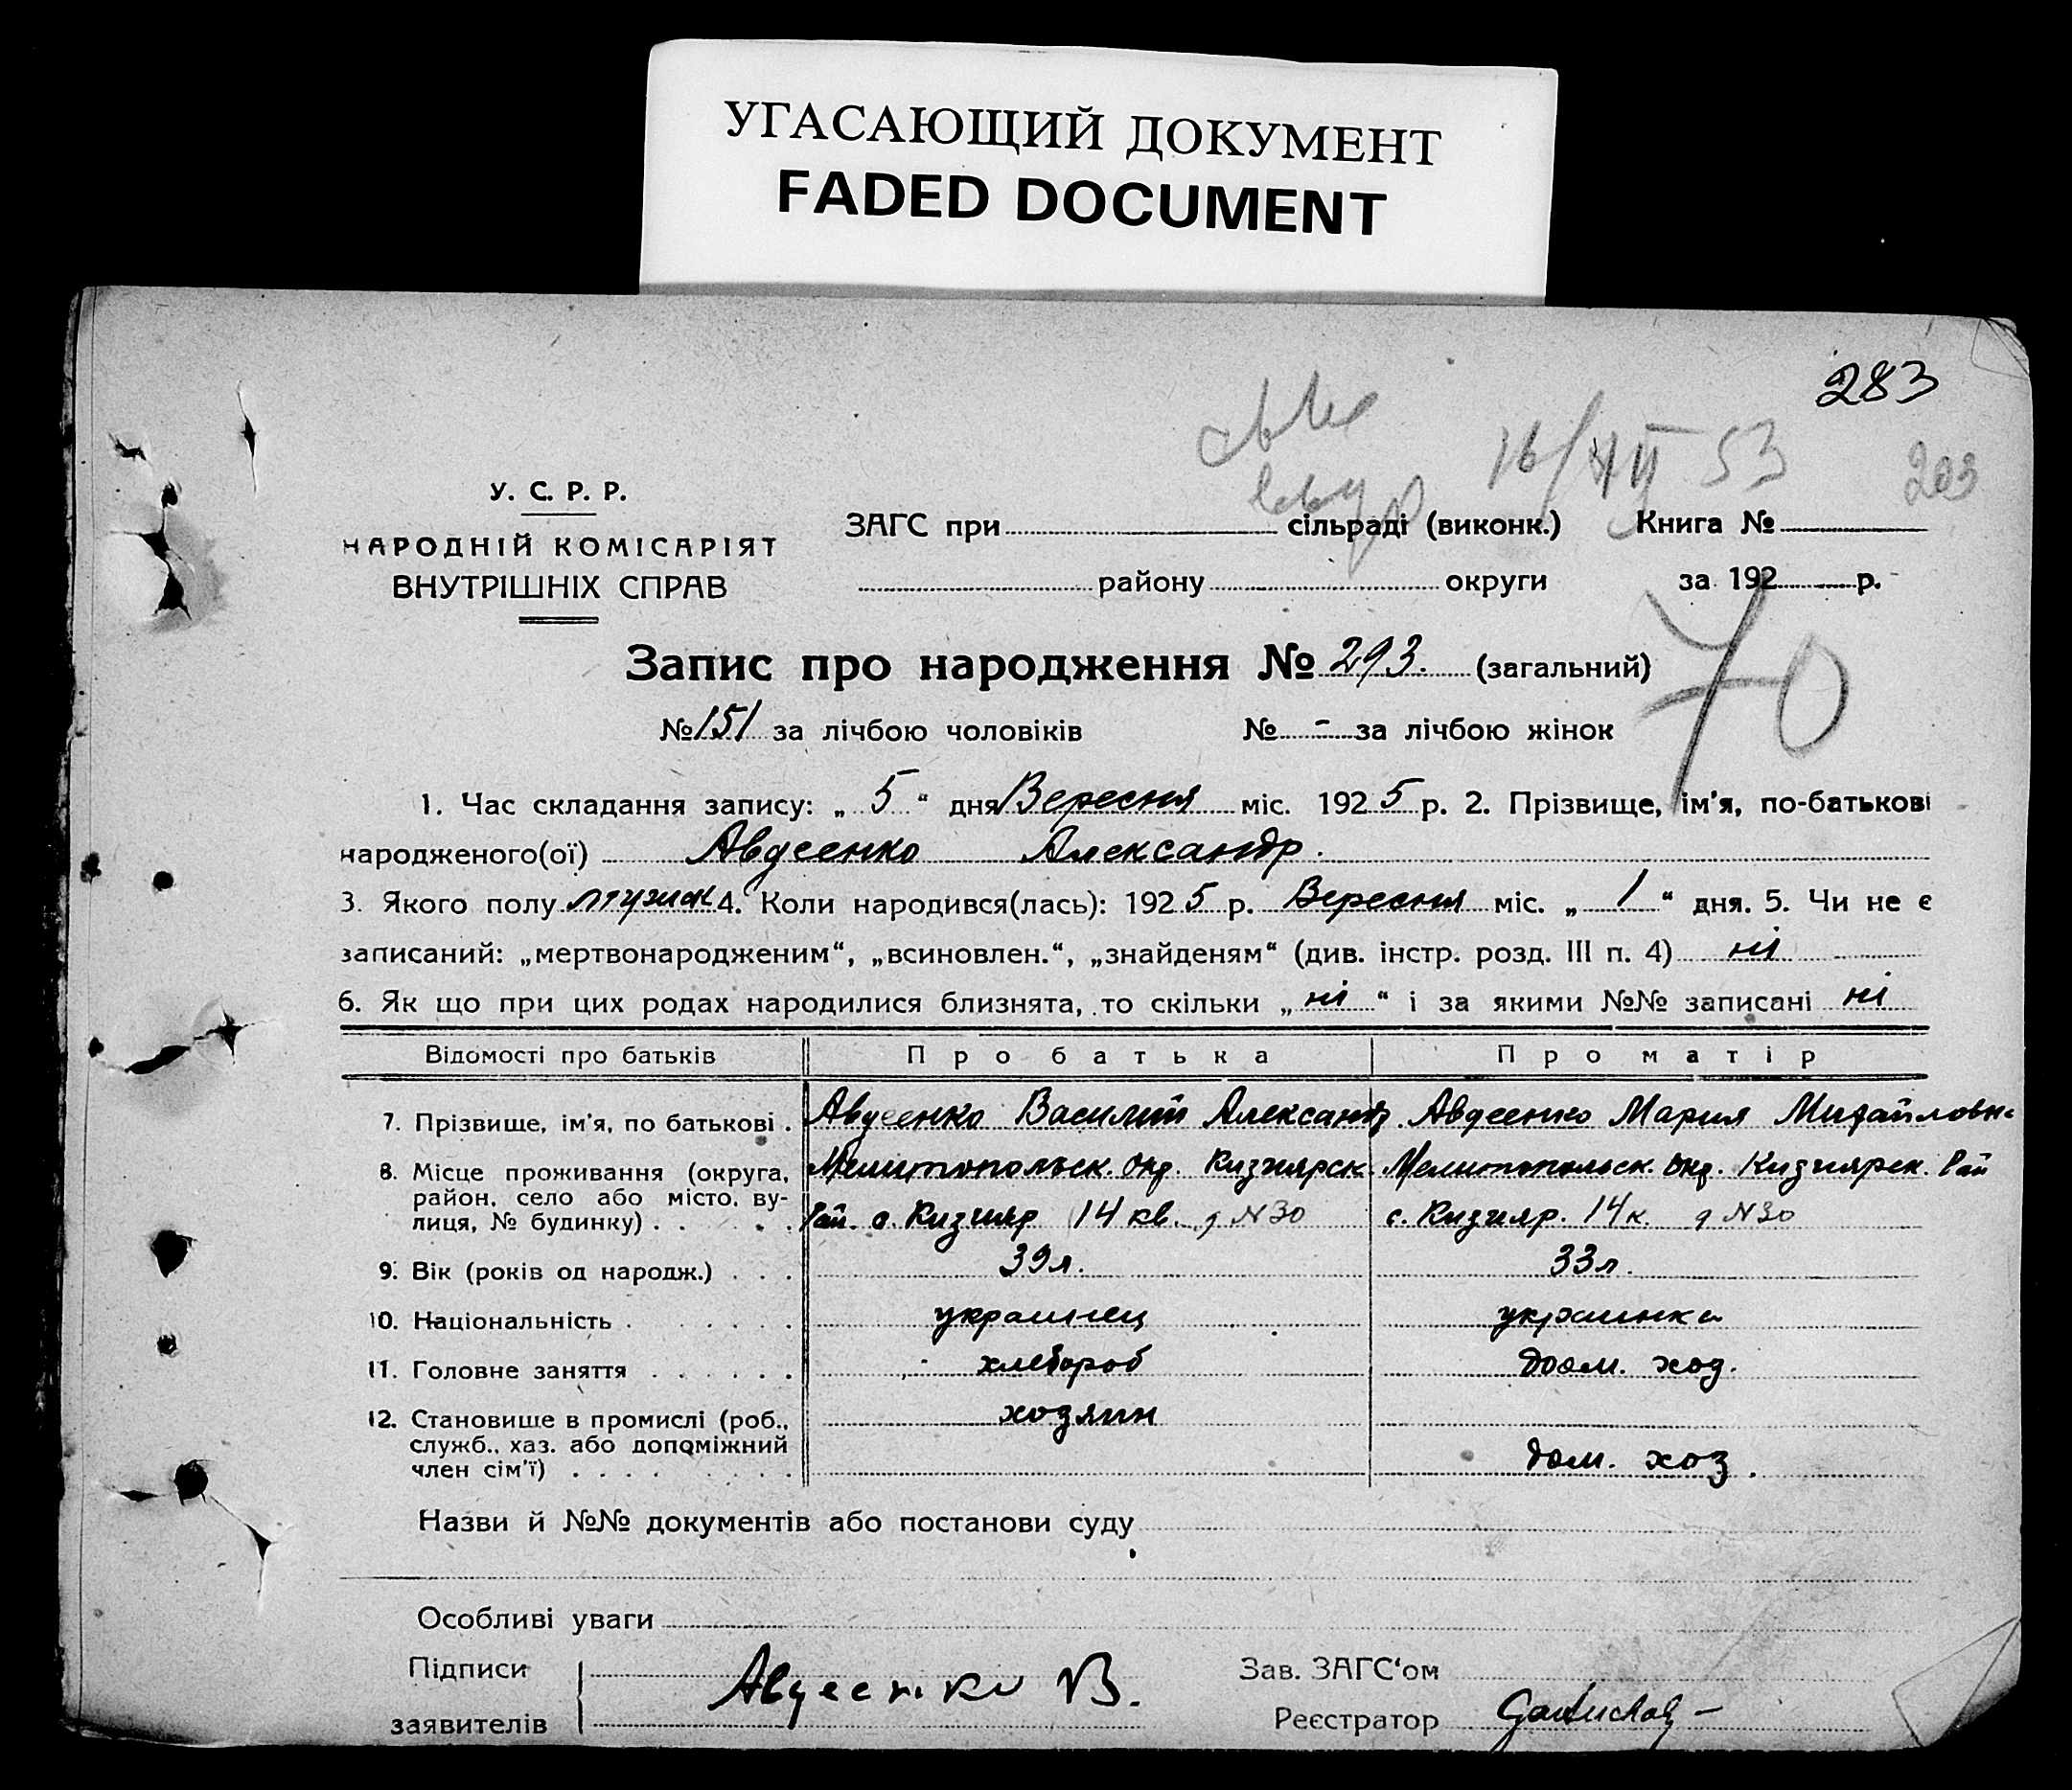 УГАСАЮЩИЙ ДОКУМЕНТ
FADED DOCUMENT
283
16/ 53
203
У. С. Р. Р.
НАРОДНІЙ КОМІСАРІЯТ
ВНУТРІШНІХ СПРАВ
ЗАГС при сільраді (виконк.) Книга №
району округи за 192 р.
70
Запис про народження № 293. (загальний)
№ 151 за лічбою чоловіків № - за лічбою жінок
1. Час складання запису: „ 5 “ дня Вересня міс. 1925 р. 2. Прізвище, ім'я, по-батькові
народженого(ої) Авдеенко Александр.
3. Якого полу мужск 4. Коли народився(лась): 1925 р. Вересня міс. „ 1 “ дня. 5. Чи не є
записаний: „мертвонародженим“, „всиновлен.“, „знайденям“ (див. інстр. розд. III п. 4) ні
6. Як що при цих родах народилися близнята, то скільки „ ні “ і за якими №№ записані ні
Відомості про батьків Про батька Про матір
7. Прізвище, ім'я, по батькові . Авдеенко Василий Александр. Авдеенко Мария Михайловн
8. Місце проживання (округа, Мелитопольск. окр. Кизиярск. Мелитопольск. окр. Кизиярск. Рай
район, село або місто, ву-
лиця, № будинку) . . . . Рай. с. Кизияр 14 кв. д N 30 с. Кизияр. 14 к. д N 30
9. Вік (років од народж.) . . . 39 л. 33 л.
10. Національність . . . . . . украинец украинка
11. Головне заняття . . . . . . хлебороб дом. хоз.
12. Становище в промислі (роб., хозяин
служб., хаз. або допоміжний
член сім'ї) . . . . . . . . дом. хоз.
Назви й №№ документів або постанови суду
Особливі уваги
Підписи Авдеенко В. Зав. ЗАГС'ом
заявителів Реєстратор